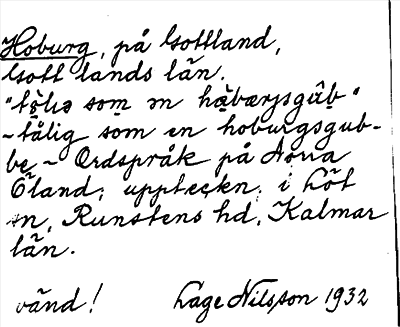 Hoburg, på Gottland,
Gottlands län.
som en
~ tålig som en hoburgsgub-
be ~ Ordspråk på Norra
Öland; uppteckn. i Löt
sn, Runstens hd, Kalmar
län.
vänd! Lage Nilsson 1932